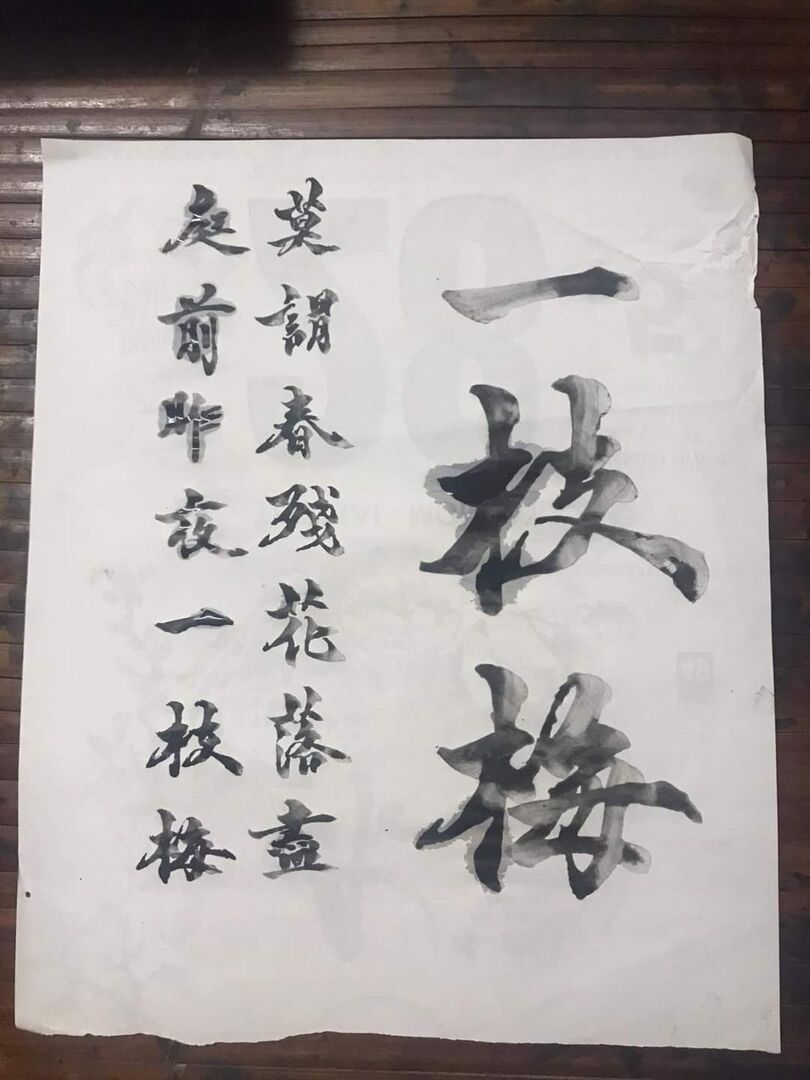 一枝梅
莫謂春殘花落盡
庭前昨夜一枝梅